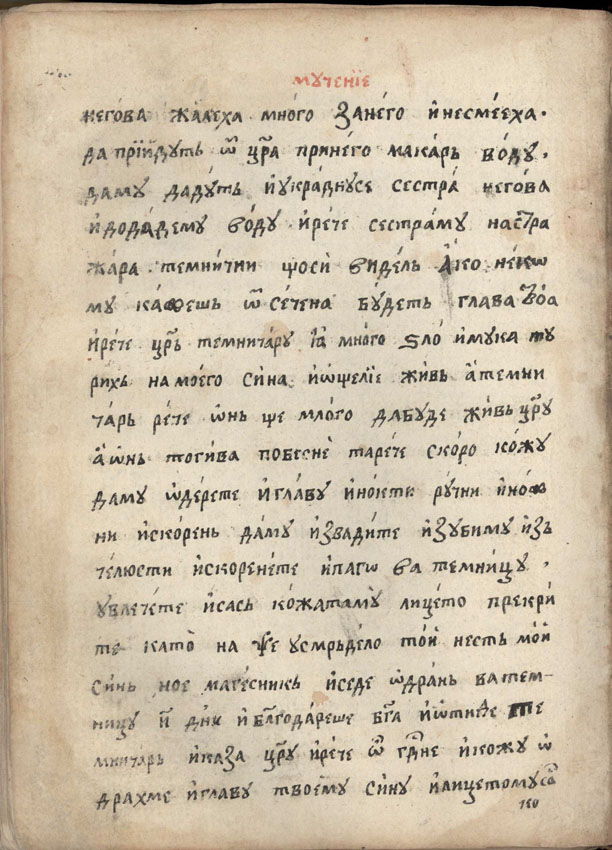 мꙋченїе
негова жалеха много за него и несмееха.
да прїидꙋть ѿ цр҃а при него макарь водꙋ.
дамꙋ дадꙋть и ꙋкраднꙋсе сестра негова
и додадемꙋ водꙋ и рече сестрамꙋ на стра
жара темнични щоси видель ако некѡ
мꙋ кажешь ѿсечена бꙋдеть глава твоа
и рече цр҃ь темничарꙋ ꙗ много ѕло и мꙋка тꙋ
рихь на моего сина и ѡще лїе живь а темни
чарь рече ѡнь ще млого да бꙋде живь цр҃ꙋ
а ѡнь тогива побесне та рече скоро кожꙋ
дамꙋ ѡдерете и главꙋ и нокти рꙋчни и нож
ни и скорень дамꙋ извадите и зꙋби мꙋ изь
челюсти искоренете и пагѡ ва темницꙋ.
ꙋвлечете и сась кожата мꙋ лицето прекри
те като на ѱе ꙋсмрьдело той несть мой
синь ное магесникь и седе ѡдрань ва тем-
ницꙋ дн҃и и бл҃годареше бг҃а и ѡтиде те
мничарь и каза цр҃ꙋ и рече ѽ гд҃не и кожꙋ ѡ
драхме и главꙋ твоемꙋ синꙋ и лицетомꙋ со